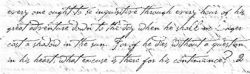 every one ought to be inquisitive through every hour of his
great adventure down to the day when he shall no longer
cast a shadow in the sun. For if he dies without a question
in his heart, what excuse is there for his continuance?